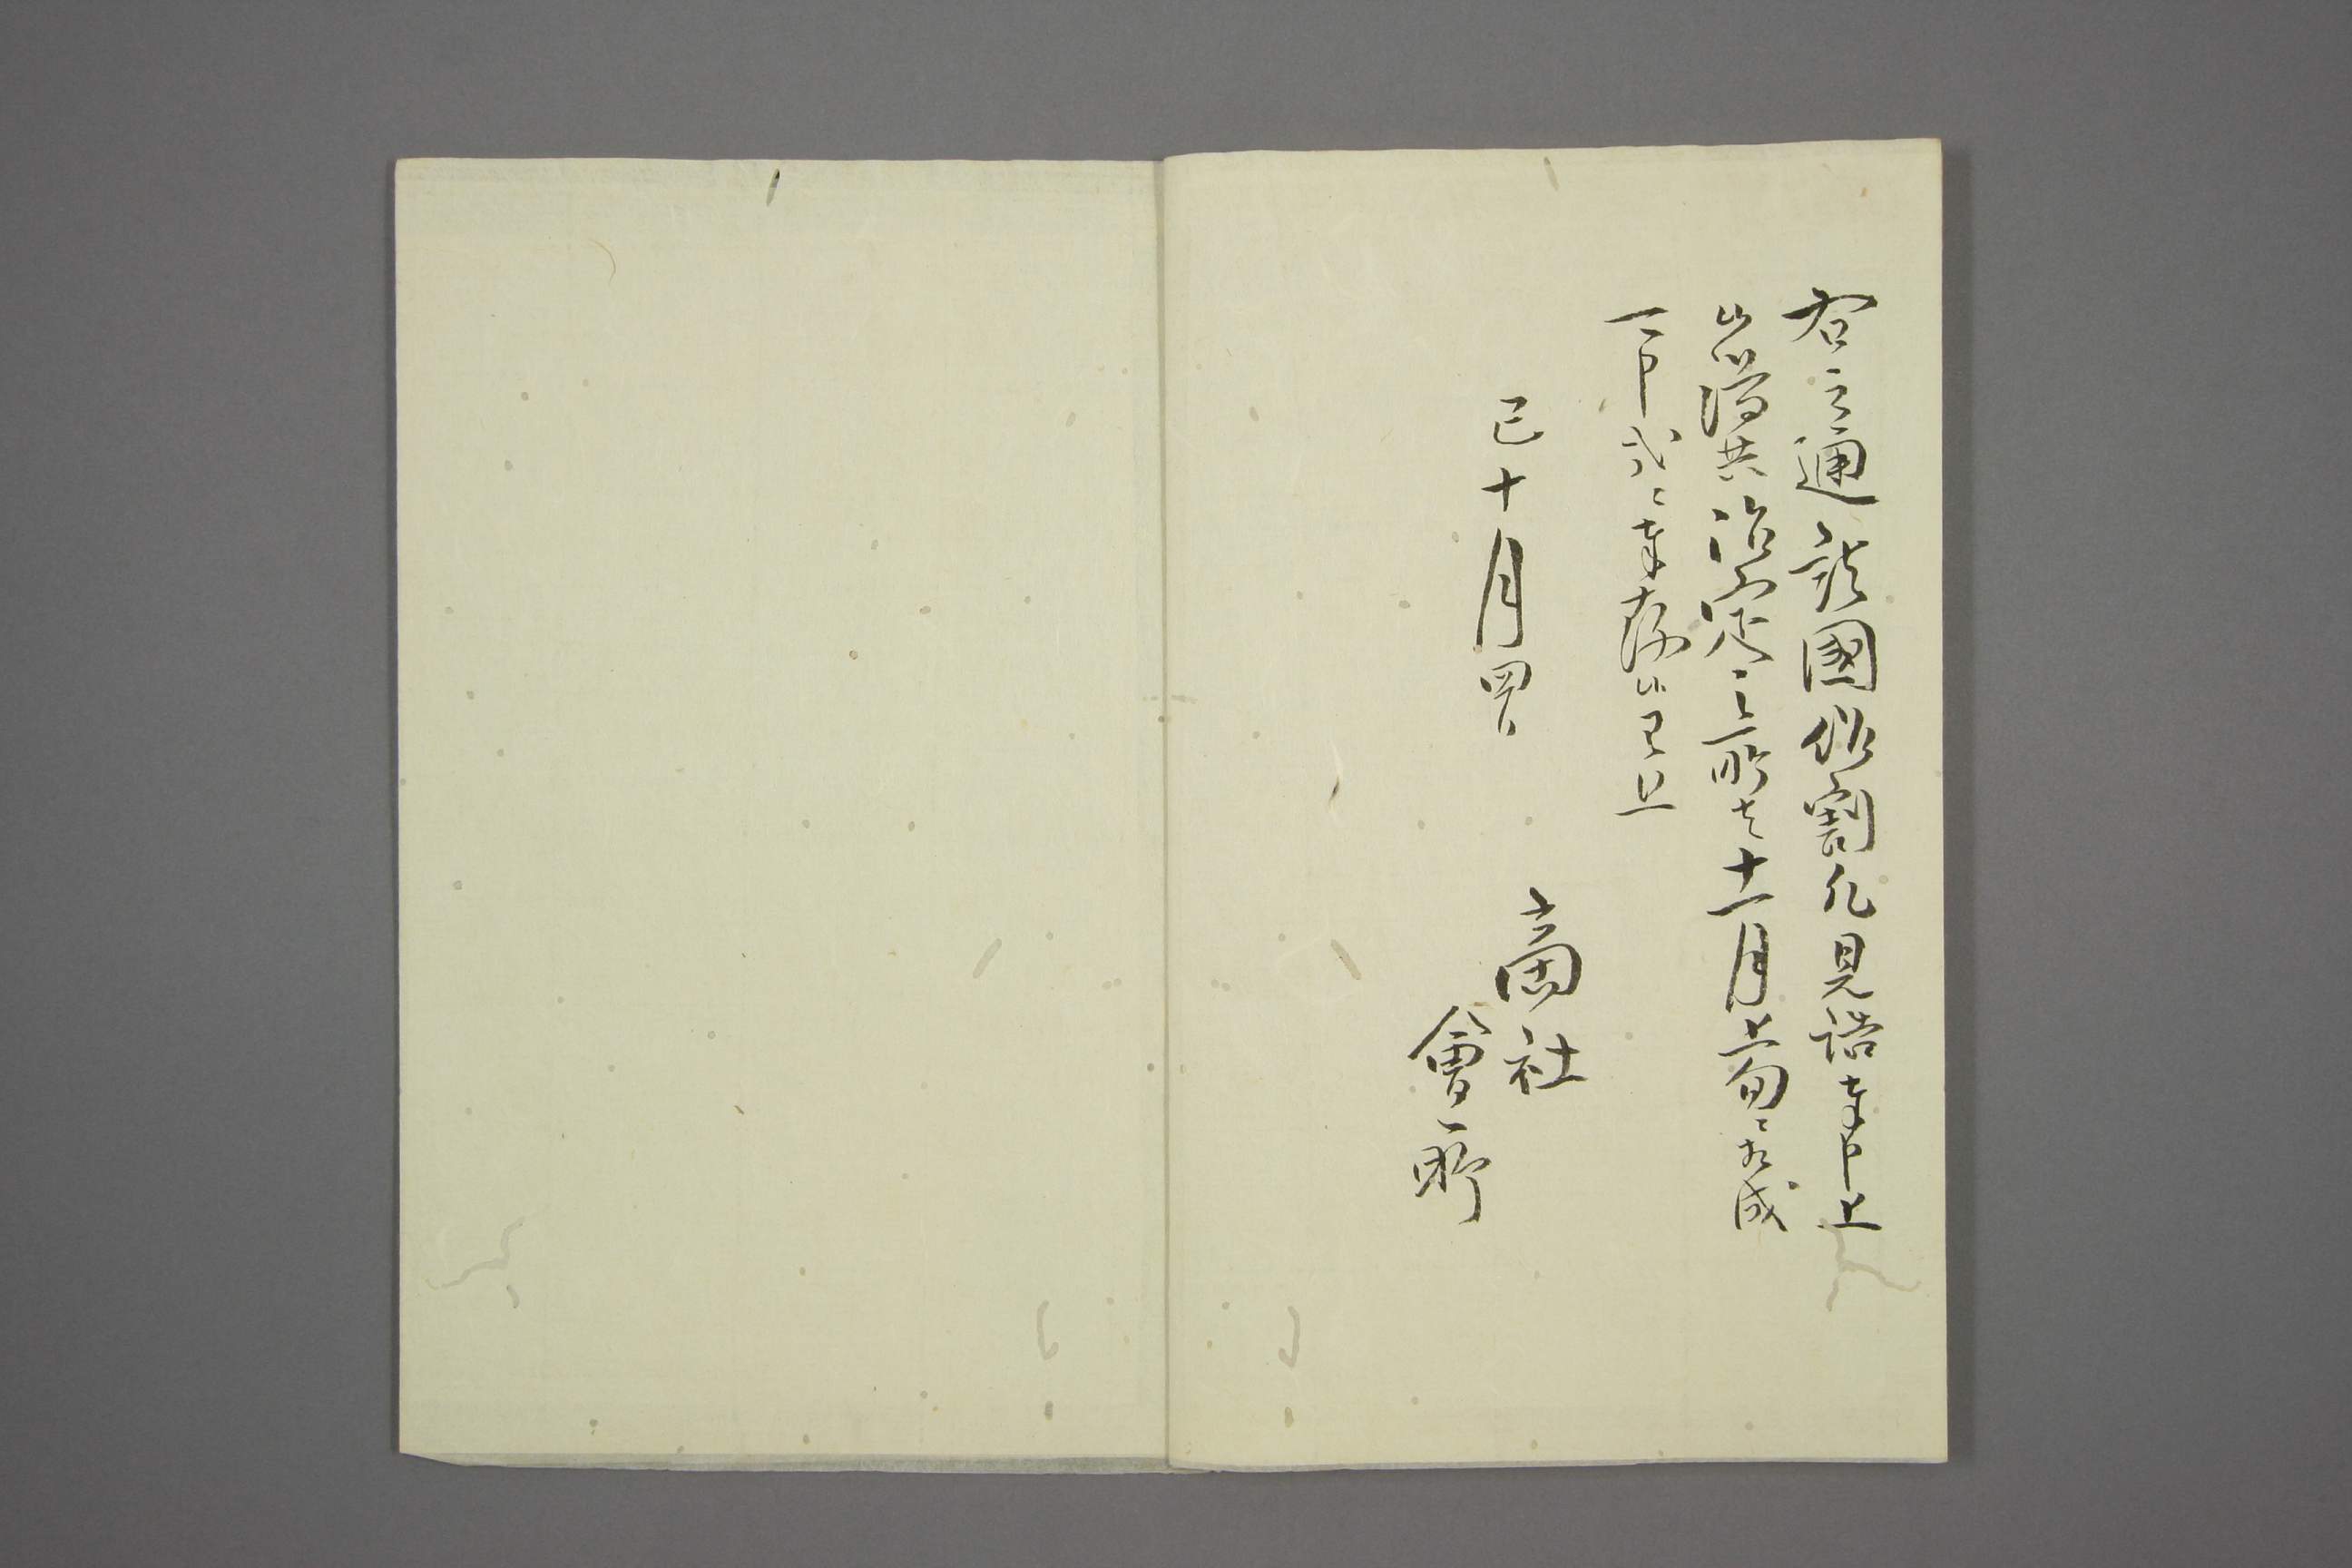 右之通諸國作割凡見詰奉申上
候得共治定之所は十一月上旬ニ相成
可申哉ニ奉存候已上
巳十月四日
商社
會所